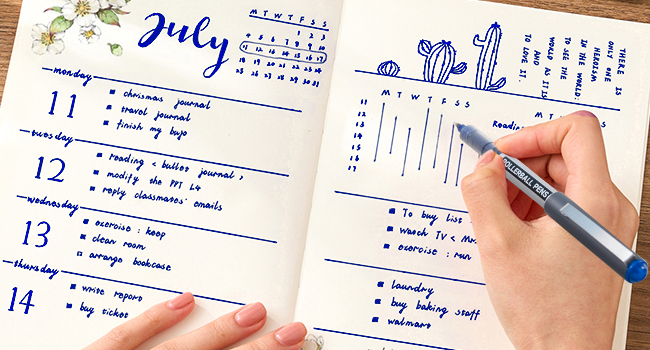 July
M T W T F S S
1 2 3
4 5 6 7 8 9 10
11 12 13 14 15 16 17
18 19 20 21 22 23 24
25 26 27 28 29 30 31
monday
11
chrismas journal
travel journal
finish my bujo
tuesday
12
reading < bullet journal >
modify the PPT L4
reply classmates' emails
wednesday
13
exercise : keep
clean room
arrange bookcase
thursday
14
write report
buy ticket
THERE IS
ONLY ONE
HEROISM
IN THE WORLD:
TO SEE THE
WORLD AS IT IS
AND
TO LOVE IT.
M T W T F S S
11
12
13
14
15
16
17
M T
S
Readin
To buy list
watch TV < Mr
exercise : run
laundry
buy baking staff
walmart
ROLLERBALL PENS